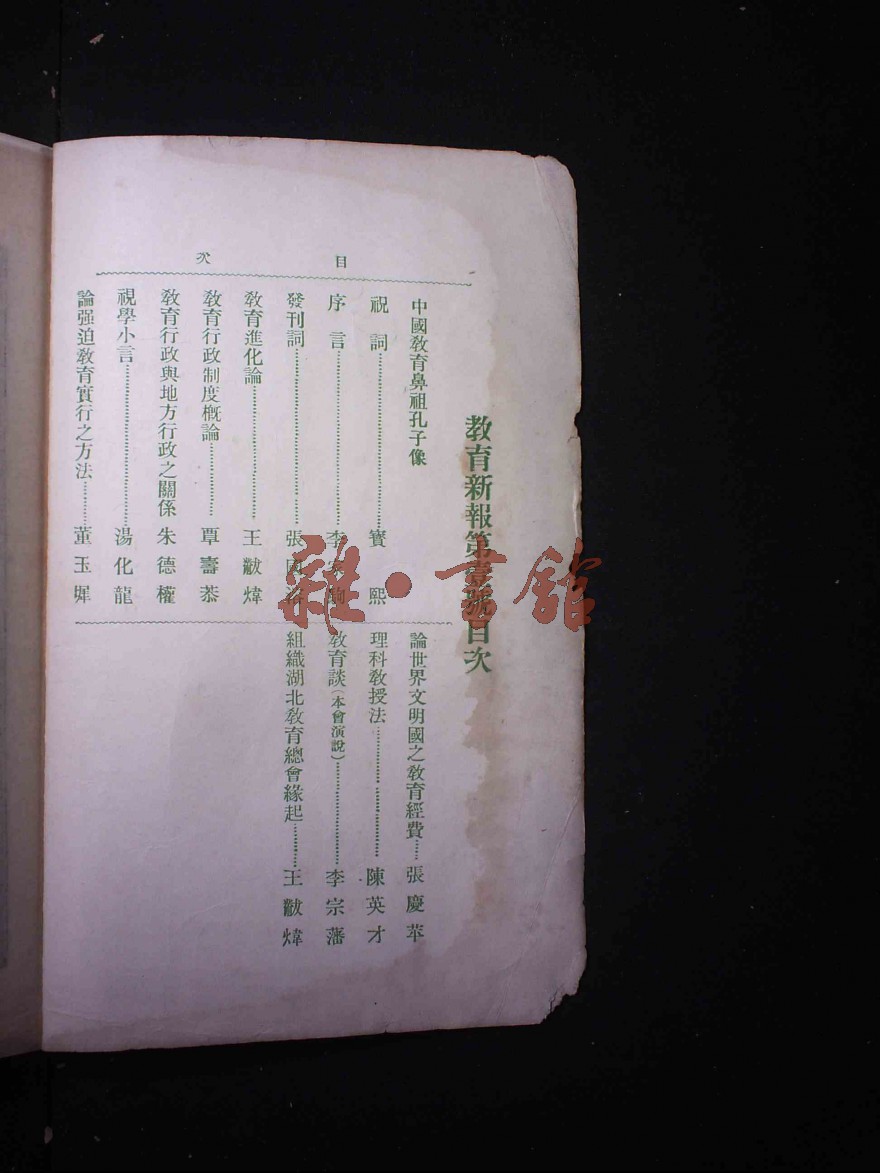 教育新報第壹號目次
目次
中國教育鼻祖孔子像
祝詞……寶熙
序言……李家駒
發刊詞……張國溶
教育進化論……王黻煒
教育行政制度概論……覃壽恭
教育行政與地方行政之關係 朱德權
視學小言……湯化龍
論强迫教育實行之方法……董玉墀
論世界文明國之教育經費……張慶苹
理科教授法……陳英才
教育談(本會演說)……李宗藩
組織湖北教育總會緣起……王黻煒
雜·書館